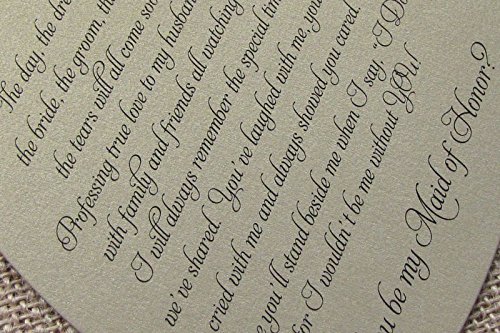 The day, the
the bride, the groom, the
the tears will all come soo
Professing true love to my husban
with family and friends all watching
I will always remember the special time
we've shared. You've laughed with me, you
cried with me and always showed you cared.
e you'll stand beside me when I say, "I Do
for I wouldn't be me without YOU!
u be my Maid of Honor?